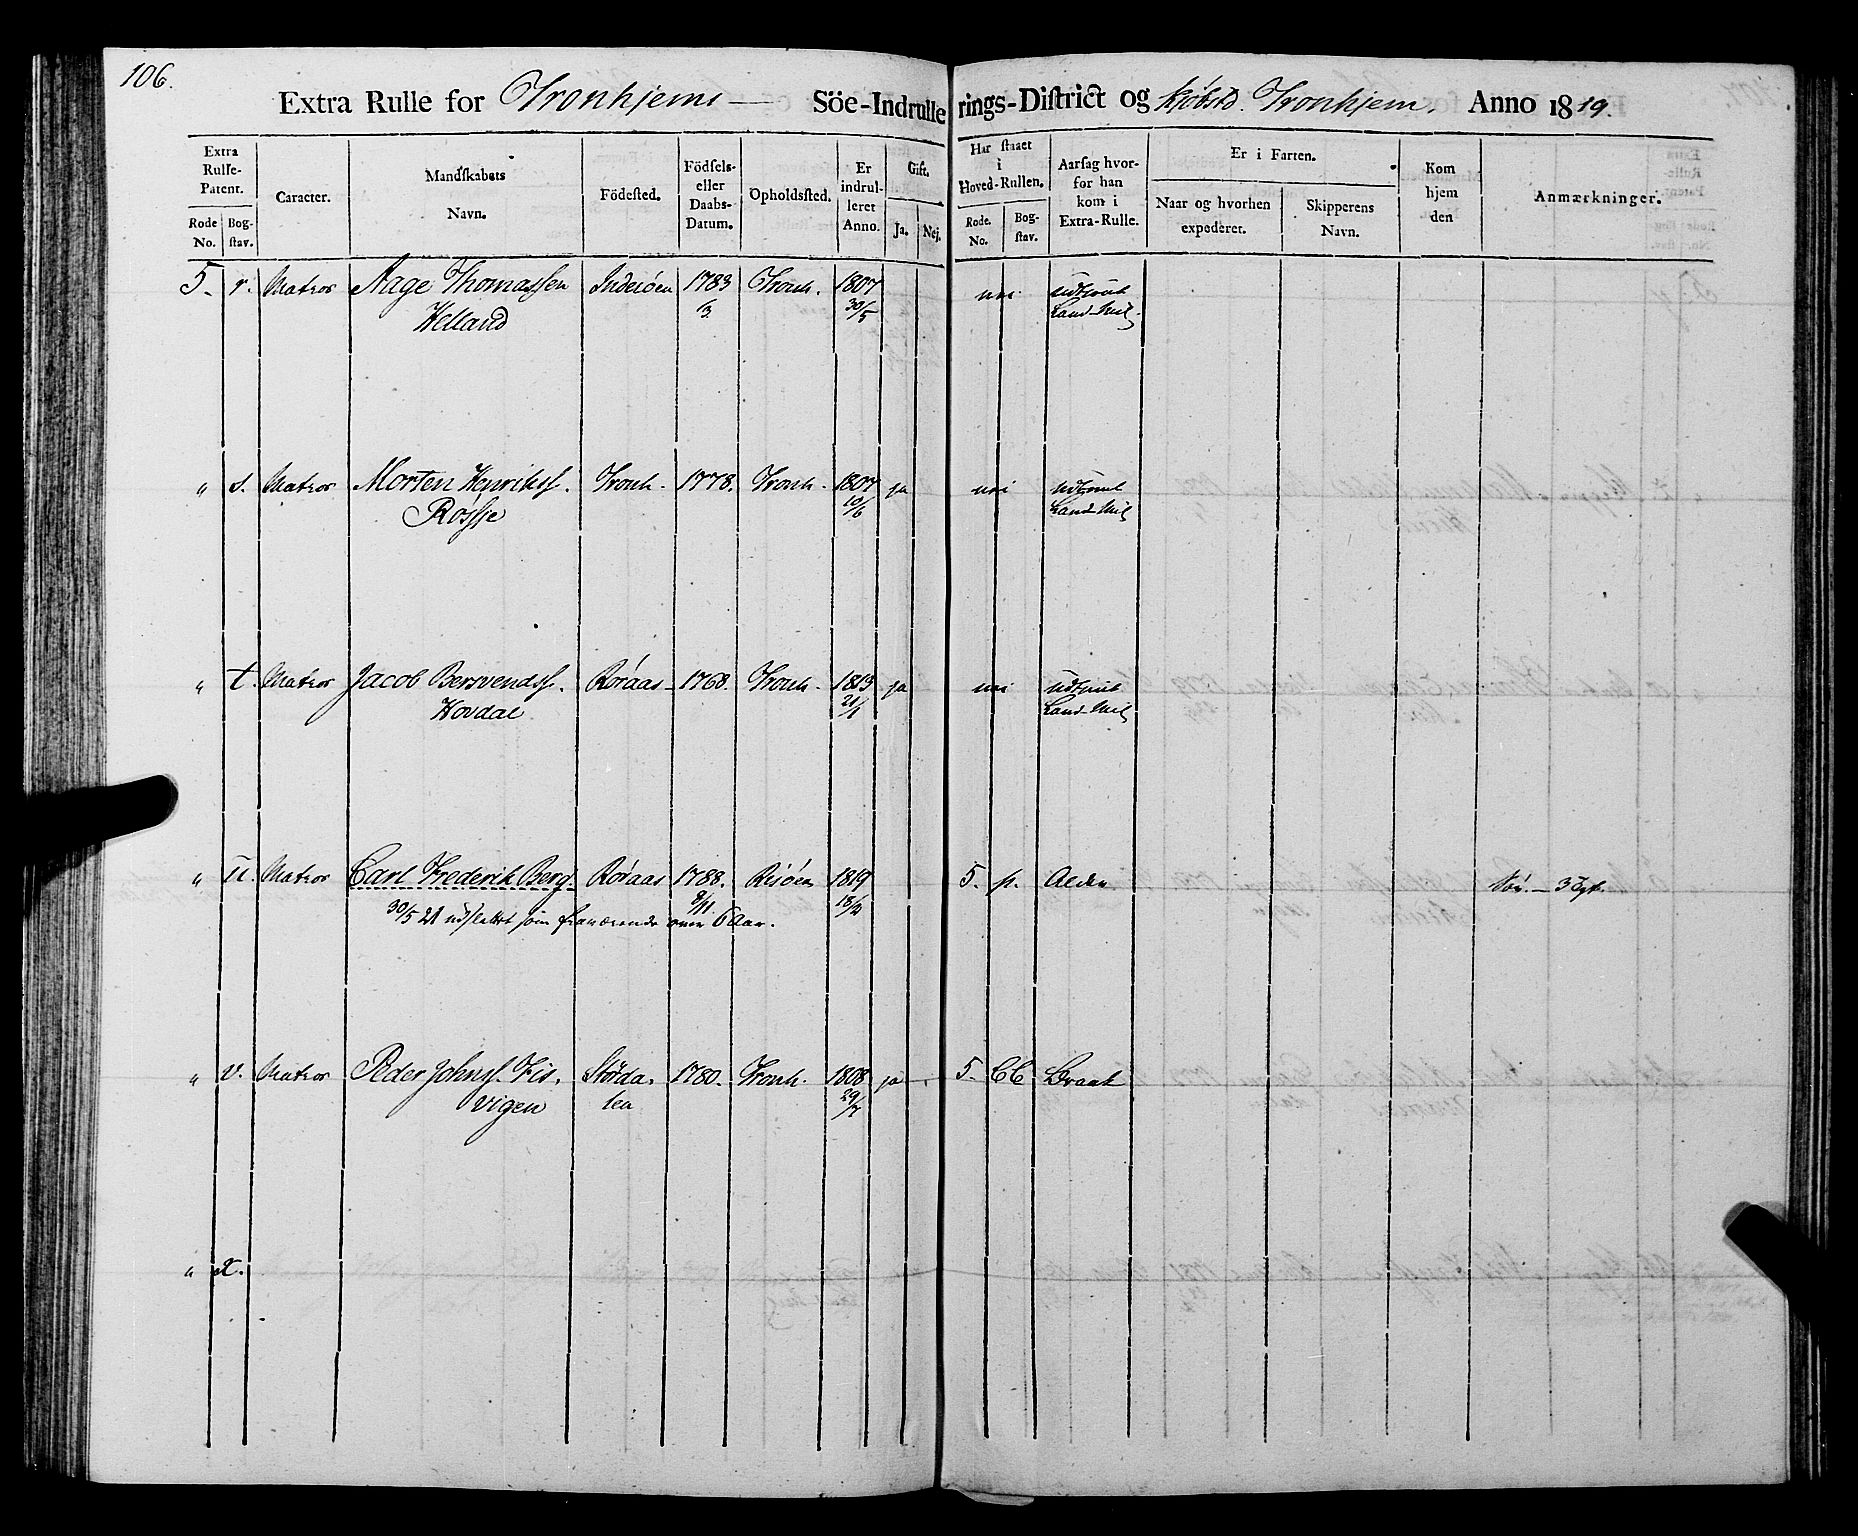 106.
Extra Rulle for Tronhjems — Söe-Indrullerings-District og Kjøbstd. Tronhjem. Anno 1819.
Extra Rulle-Patent. Caracter. Mandskabets Navn. Födested. Födsels- eller Daabs-Datum. Opholdssted. Er indrulleret Anno. Gift. Har staaet i Hoved-Rullen. Aarsag hvorfor han kom i Extra-Rulle. Er i Farten. Kom hjem den Anmærkninger.
Rode No. Bogstav. Ja. Nej. Rode. No. Bogstav. Naar og hvorhen expederet. Skipperens Navn.
5. r. Matros Aage Thomassen Inderöen 1783 Tronh. 1807 nei udtjent
Helland 30/5 Land-Mil.
" s. Matros Morten Henrikss. Tronh. 1778. Tronh. 1807 ja nei udtjent
Røssje 10/6 Land-Mil
" t. Matros Jacob Bersvendss. Röraas 1768. Tronh. 1813 ja nei udtjent
Hovdal 21/1 Land-Mil
" u. Matros Carl Frederik Berg Röraas 1788. Risöen 1819 5. p. Alder
9/11. 18/2
30/5 21 udslettet som fraværende over 6 Aar.
" v. Matros Peder Johnss. Fis- Størda- 1780. Tronh. 1808 ja 5. CC Braak
vigen len 29/7
" x.